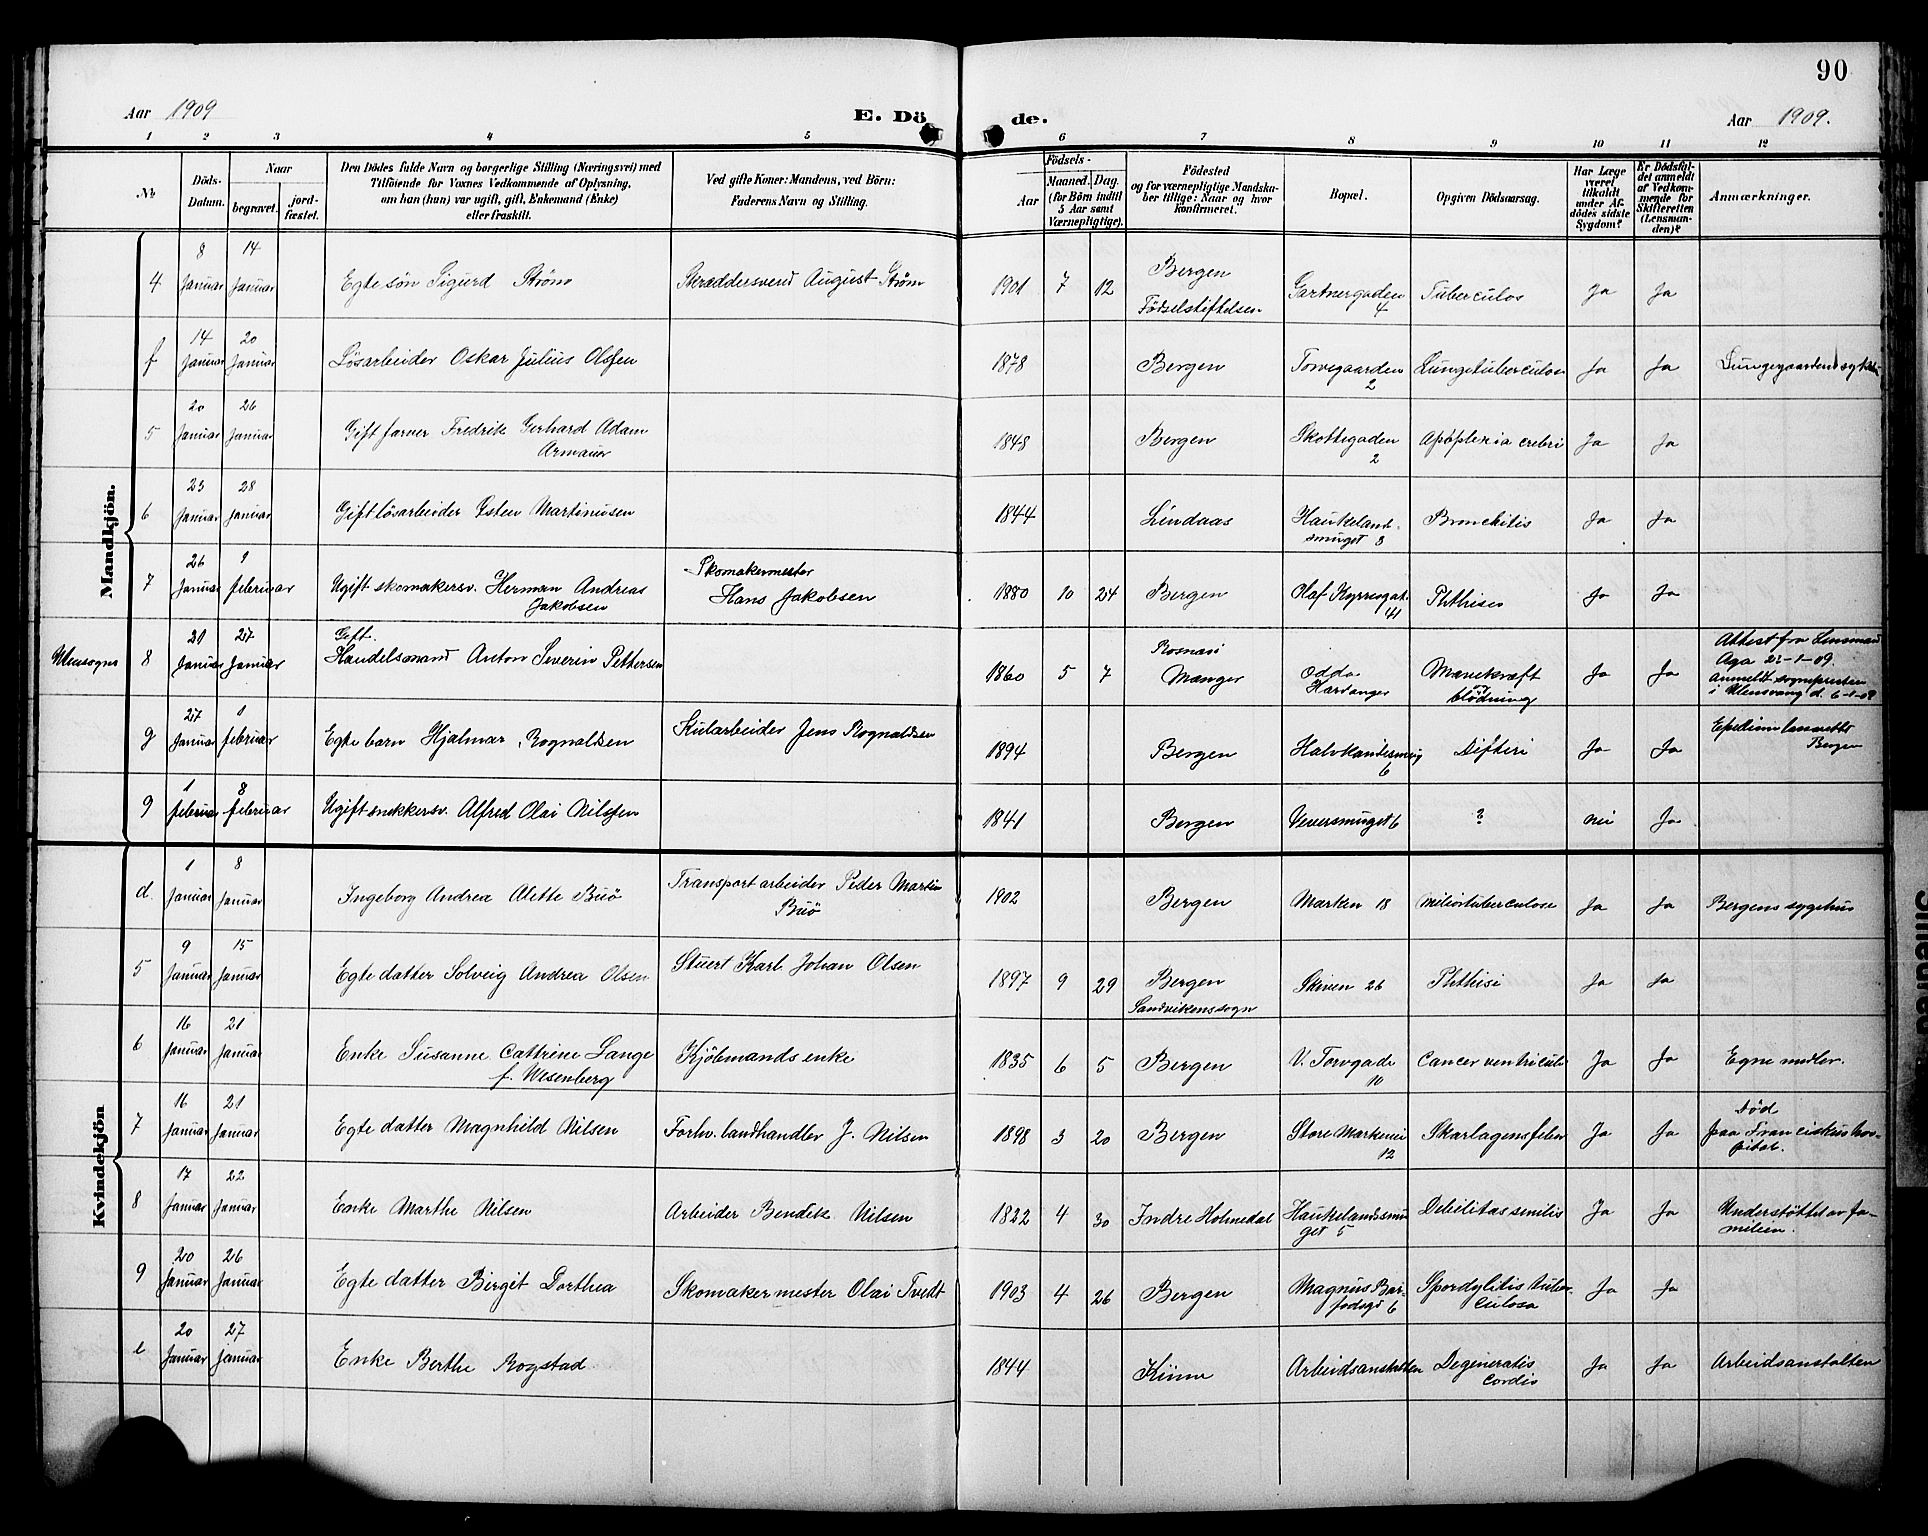 90
Aar 1909
E. Dö de.
Aar 1909.
1 2 3 4 5 6 7 8 9 10 11 12
No
Döds-Datum.
Naar
begravet.
jord-fæstet.
Den Dödes fulde Navn og borgerlige Stilling (Næringsvei) med
Tilföiende for Voxnes Vedkommende af Oplysning,
om han (hun) var ugift, gift, Enkemand (Enke)
eller fraskilt.
Ved gifte Koner: Mandens, ved Börn:
Faderens Navn og Stilling.
Födsels-
Aar
Maaned. Dag.
(for Börn indtil
5 Aar samt
Værnepligtige).
Födested
og for værnepligtige Mandska-
ber tillige: Naar og hvor
konfirmeret.
Bopæl.
Opgiven Dödsaarsag.
Har Læge
været
tilkaldt
under Af-
dödes sidste
Sygdom?
Er Dödsfal-
det anmeldt
af Vedkom-
mende for
Skifteretten
(Lensman-
den)?
Anmærkninger.
Mandkjön.
4 8 Januar 14 Januar Egte sön Sigurd Ström Skræddersvend August Ström 1901 7 12 Bergen Födselstiftelsen Gartnergaden 4 Tuberculos Ja Ja
f 14 Januar 20 Januar Lösarbeider Oskar Julius Olsen 1878 Bergen Torvegaarden 2 Lungetuberculose Ja Ja
5 20 Januar 26 Januar Gift farver Fredrik Gerhard Adam Armauer 1848 Bergen Skottegaden 2 Apoplexia crebri Ja Ja
6 23 Januar 28 Januar Gift lösarbeider Esten Martinusen 1844 Lindaas Haukelandsmuget 3 Bronchitis Ja Ja
7 26 Januar 1 februar Ugift skomakersv. Herman Andreas Jakobsen Skomakermester Hans Jakobsen 1880 10 24 Bergen Olaf Kyrresgt. 41 Phthises Ja Ja
8 21 Januar 27 Januar Gift. Handelsmand Anton Severin Pettersen 1860 5 7 Manger Odda Hardanger Mavekræft blödning Ja Ja Attest fra Lensmand Aga
g 27 Januar 1 februar Egte barn Hjalmar Rognaldsen Kularbeider Jens Rognaldsen 1894 Bergen Halvkandesmug 6 Difteri Ja Ja Epedemilasarette Bergen
9 1 februar 8 februar Ugift snekkersv. Alfred Olai Nilsen 1841 Bergen Veversmuget 6 ? nei Ja
Kvindekjön
d. 1 Januar 8 Januar Ingeborg Andrea Alette Buö Transportarbeider Peder Martin Buö 1902 Bergen Marken 18 Miliartuberculose Ja Ja Bergens sygehus
5 9 Januar 15 Januar Egte datter Solveig Andrea Olsen Stuert Karl Johan Olsen 1897 9 29 Bergen Sandvikenssogn Skiven 26 Phthisi Ja Ja
6 16 Januar 21 Januar Enke Susanne Cattrine Lange f. Wesenberg Kjöbmandsenke 1835 6 5 Bergen V. Torvgade 10 Cancer ventriculi Ja Ja Egne midler.
7 16 Januar 21 Januar Egte datter Magnhild Nilsen Forhv. landhandler J. Nilsen 1898 3 20 Bergen Store Markevei 12 Skarlagensfeber Ja Ja Död paa Franciskus hospital.
8 17 Januar 22 Januar Enke Marthe Nilsen Arbeider Bendik Nilsen 1822 4 30 Indre Holmedal Haukelandsmuget 5 Debilitas senilis Ja Ja Understöttet av familien.
9 20 Januar 26 Januar Egte datter Birgit Dorthea Skomakermester Olai Tvedt 1903 4 26 Bergen Magnus Barfodsgt 6 Spondylitis tuberculosa Ja Ja
e 20 Januar 27 januar Enke Berthe Rogstad. 1844 Kinne Arbeidsanstalten Degeneratis cordis Ja Ja Arbeidsanstalten